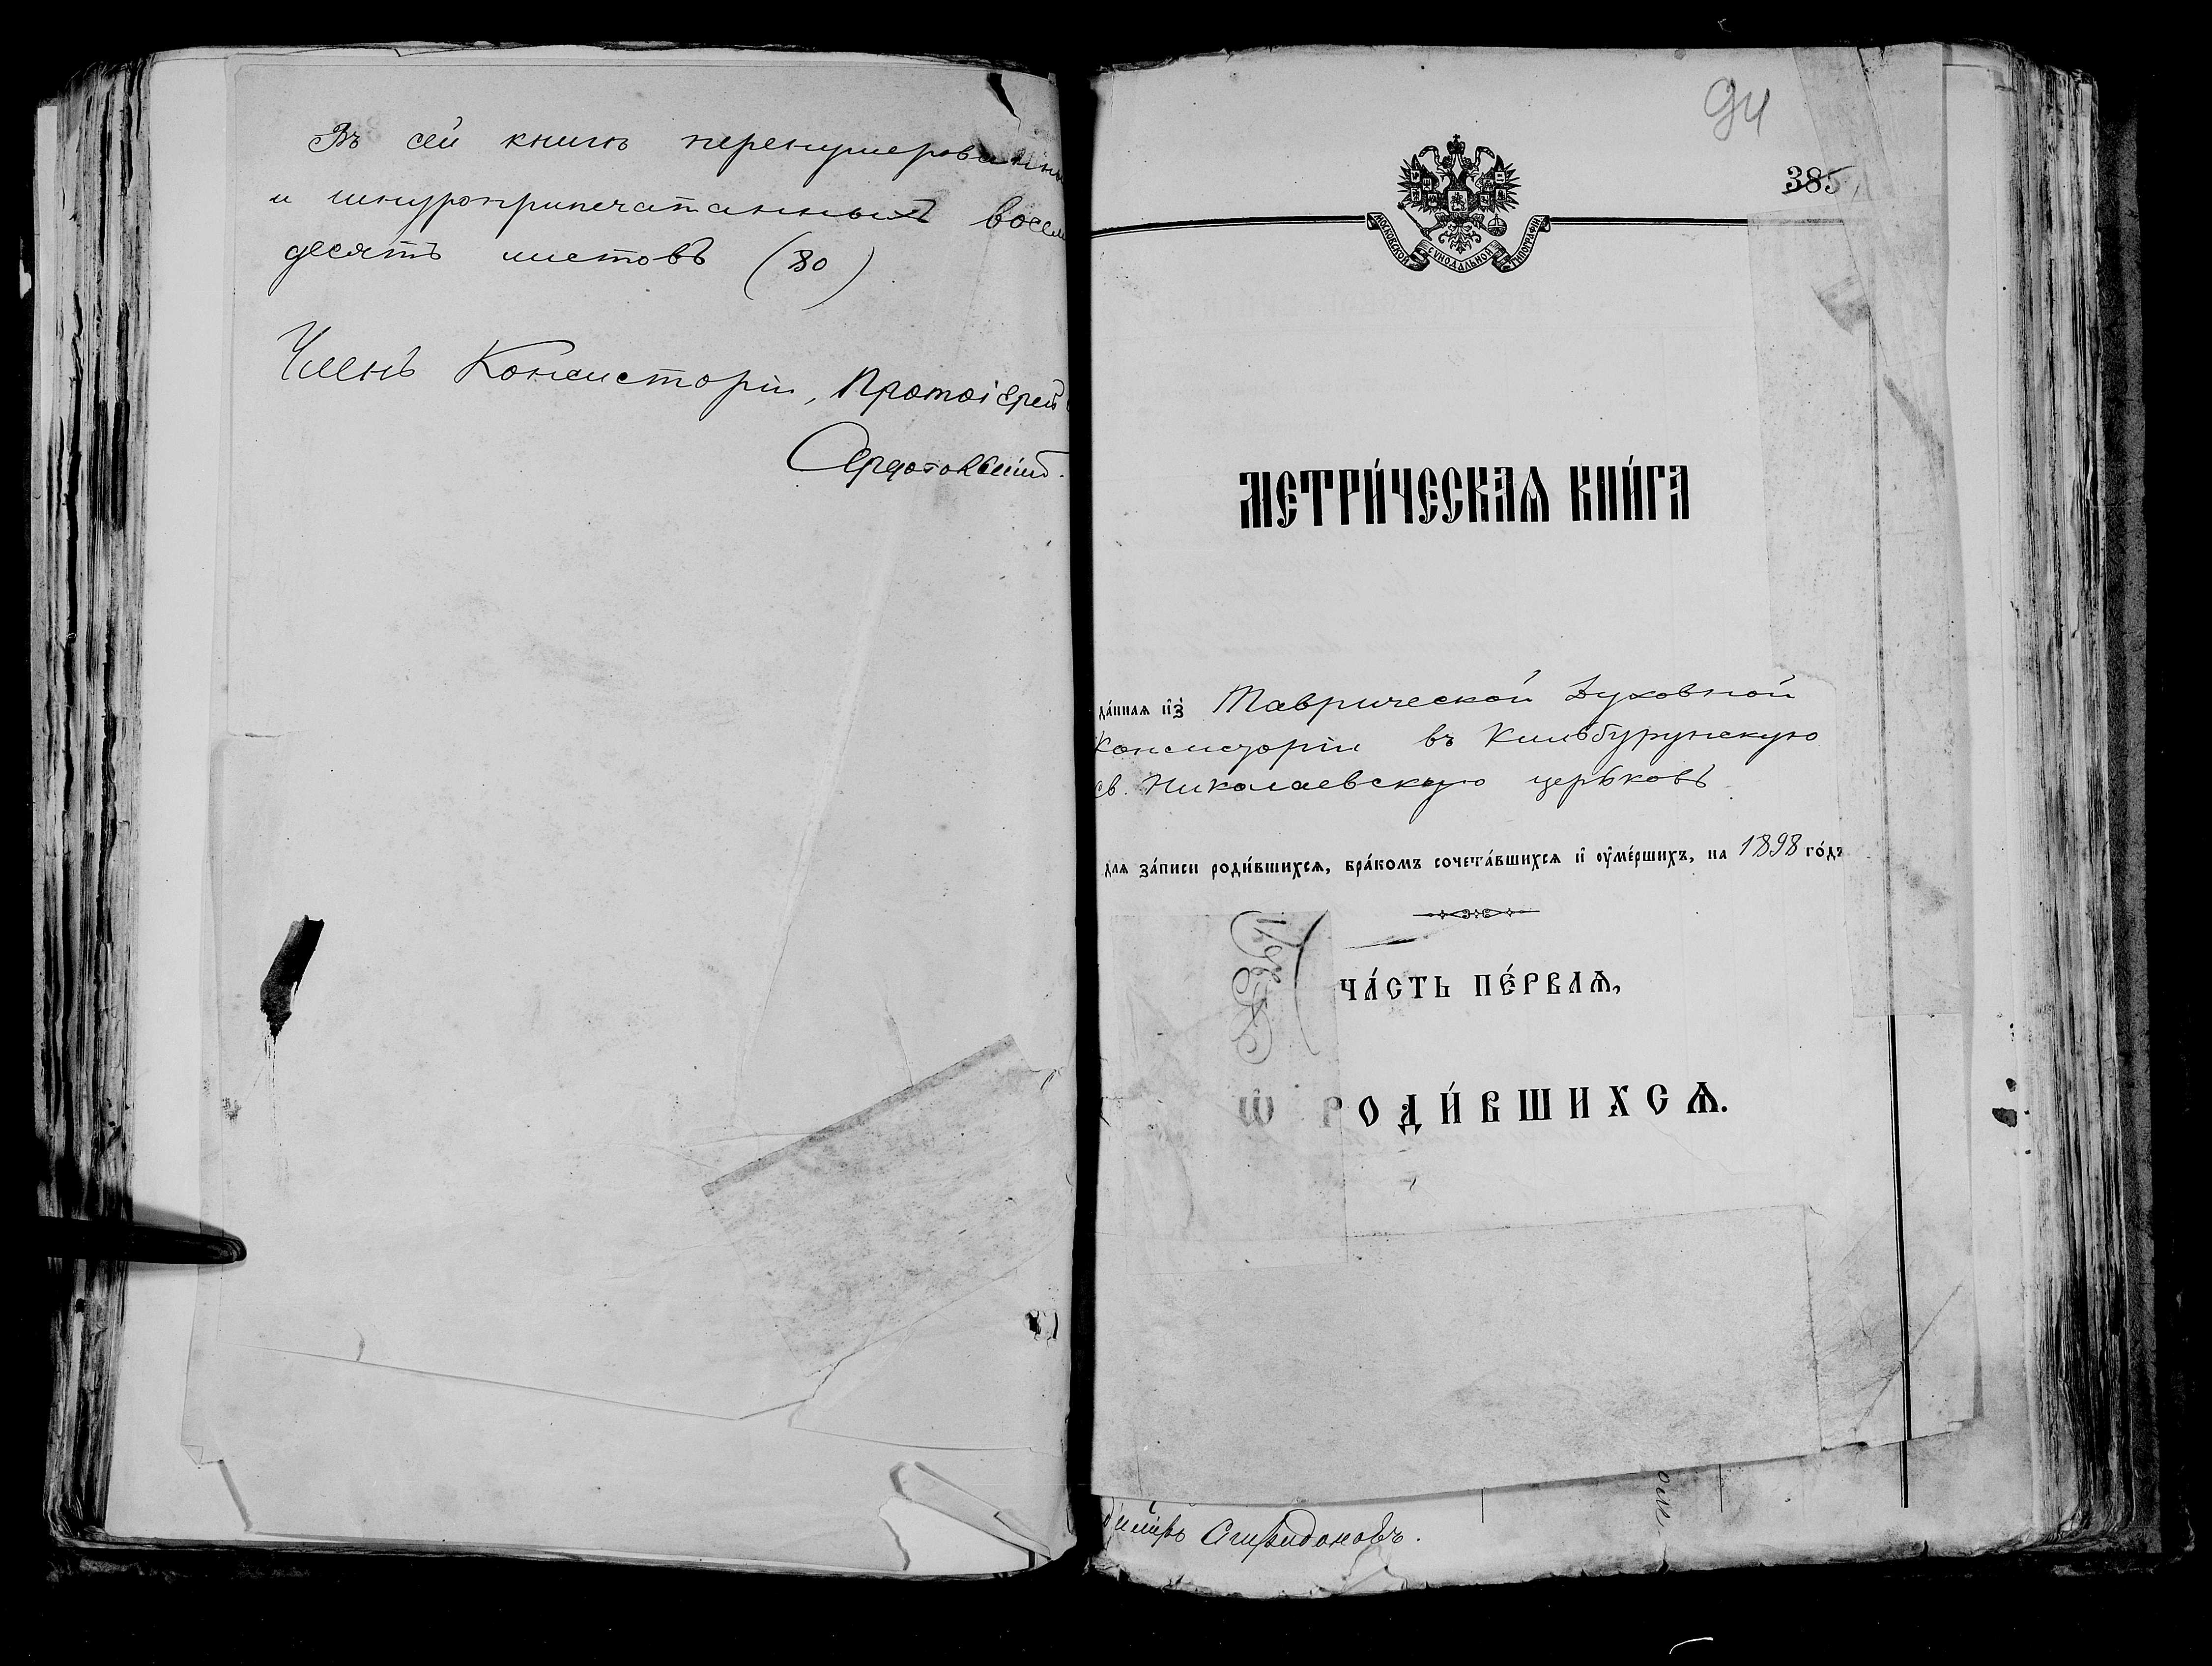 Въ сей книгѣ перенумерованны
и шнуроприпечатанныхъ восем
десятъ листовъ (80)
Членъ Консисторіи, Протоіерей
94
385
МОСКОВСКОЙ СУНОДАЛЬНОЙ ТИПОГРАФІИ
МЕТРИ́ЧЕСКАѦ КНИ́ГА
да́ннаѧ и҆з̾ Таврической Духовной
Консисторіи въ Кильбурунскую
св. Николаевскую церьковь
длѧ за́писи роди́вшихсѧ, бра́комъ сочета́вшихсѧ и҆ оу҆ме́ршихъ, на 1898 го́дъ
ЧА́СТЬ ПЕ́РВАѦ,
Ѡ҆ РОДИ́ВШИХСѦ.
Спиридоновъ.